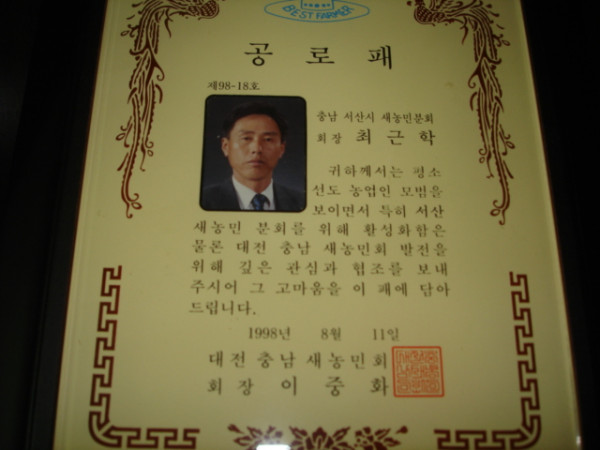 BEST FARMER
공로패
제98-18호
충남 서산시 새농민분회
회장 최근학
귀하께서는 평소
선도 농업인 모범을
보이면서 특히 서산
새농민 분회를 위해 활성화함은
물론 대전 충남 새농민회 발전을
위해 깊은 관심과 협조를 보내
주시어 그 고마움을 이 패에 담아
드립니다.
1998년 8월 11일
대전 충남 새농민회
회장 이중화